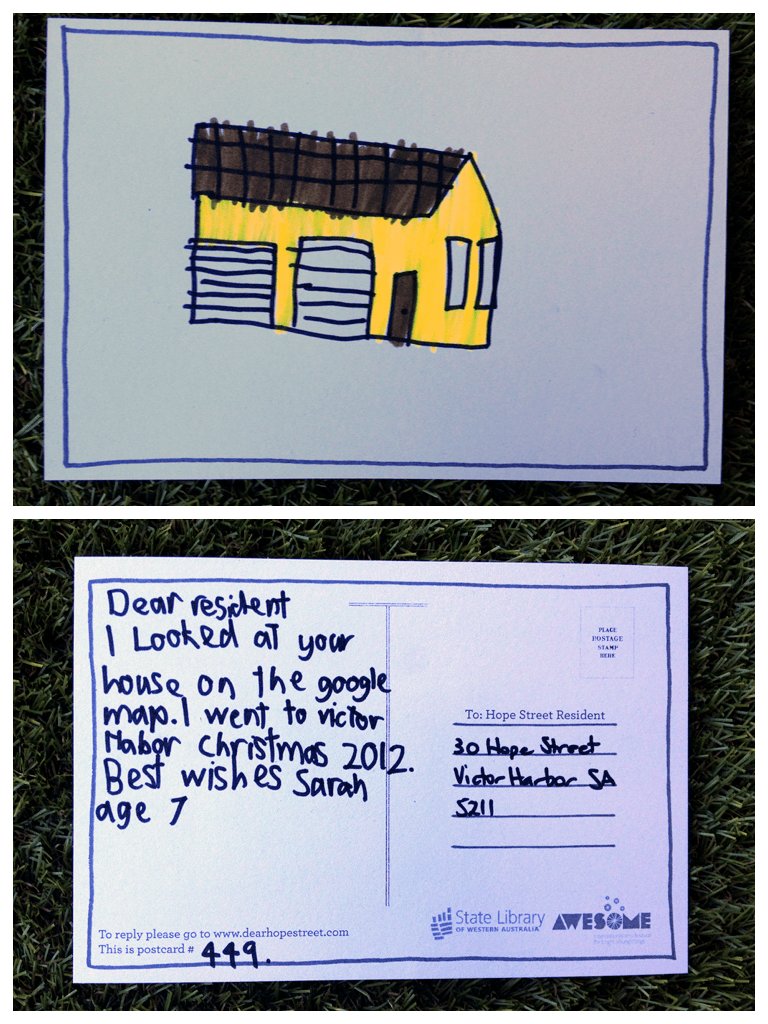 Dear resident
I Looked at your
house on the google
map. I went to victor
Habor christmas 2012.
Best wishes Sarah
age 7
PLACE
POSTAGE
STAMP
HERE
To: Hope Street Resident
30 Hope Street
Victor Harbor SA
5211
To reply please go to www.dearhopestreet.com
This is postcard # 449.
State Library
OF WESTERN AUSTRALIA
AWESOME